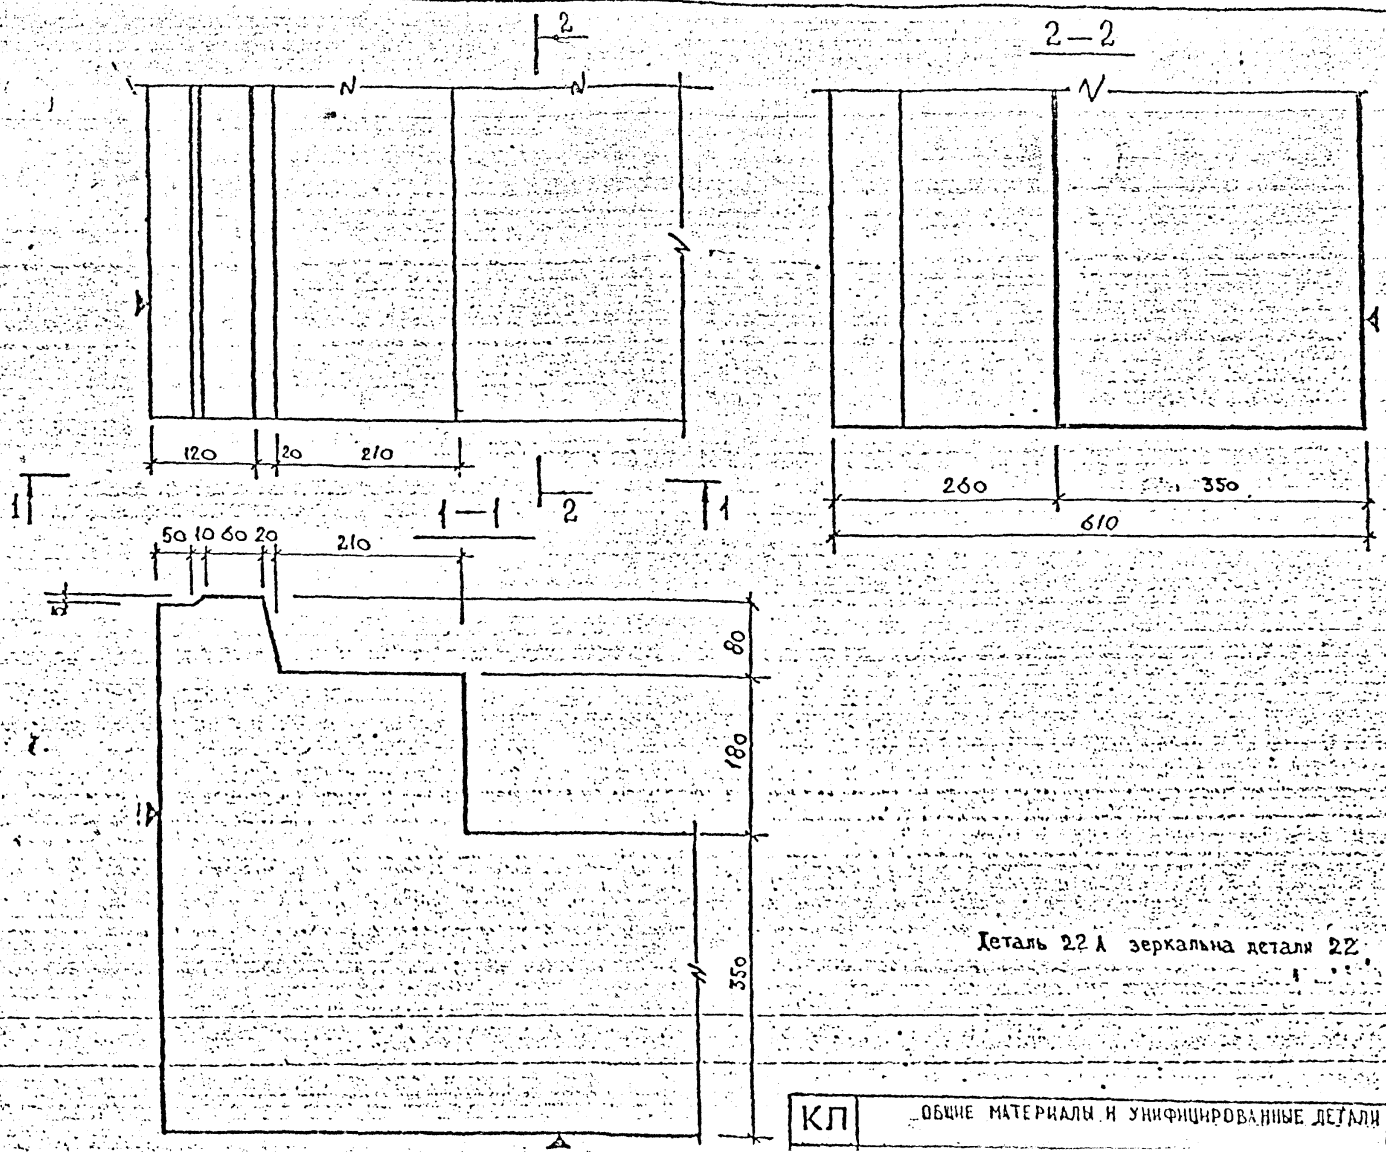 2
2—2
120 20 210
260 350
610
1 1—1 2 1
50 10 60 20 210
5
80
180
350
Деталь 22 А зеркальна детали 22
КП ОБЩИЕ МАТЕРИАЛЫ И УНИФИЦИРОВАННЫЕ ДЕТАЛИ